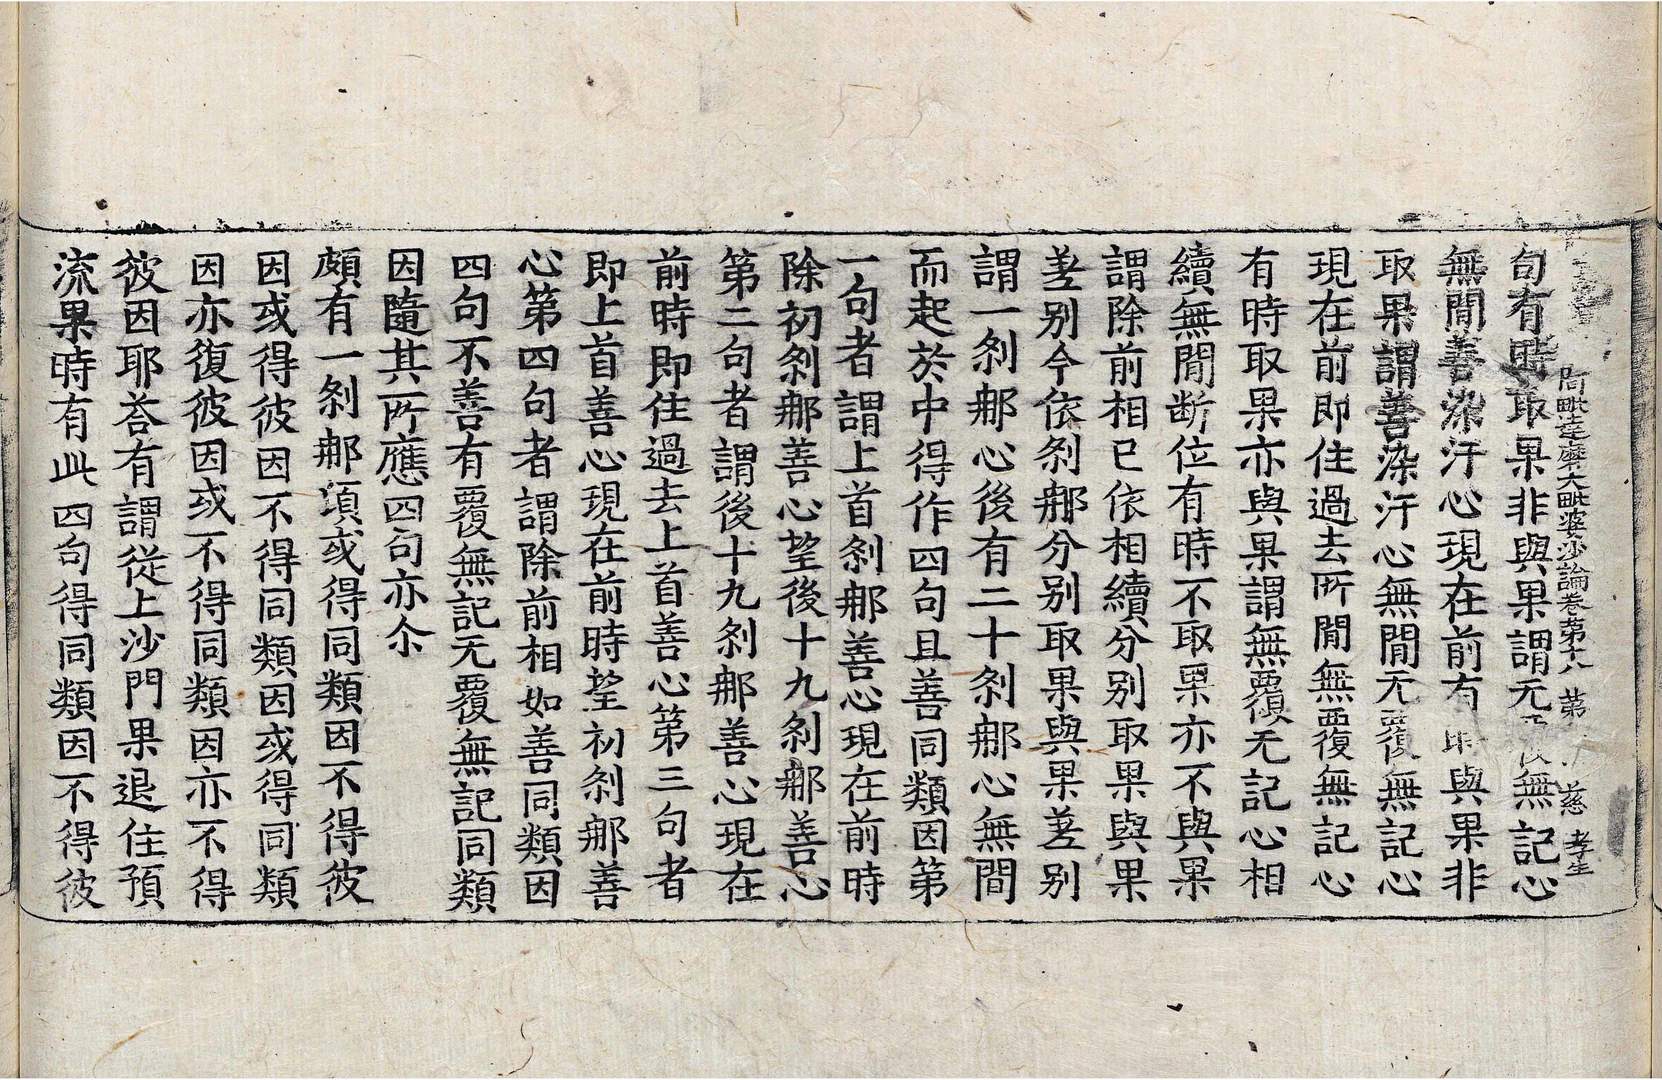 阿毗達磨大毗婆沙論卷第十八 第 慈 孝生
句有時取果非與果謂无覆無記心
無間善染汙心現在前有時與果非
取果謂善染汙心無間无覆無記心
現在前即住過去所閒無覆無記心
有時取果亦與果謂無覆无記心相
續無間断位有時不取果亦不與果
謂除前相已依相續分別取果與果
差别今依刹那分别取果與果差别
謂一刹那心後有二十刹那心無間
而起於中得作四句且善同類因第
一句者謂上首刹那善心現在前時
除初刹那善心望後十九刹那善心
第二句者謂後十九刹那善心現在
前時即住過去上首善心第三句者
即上首善心現在前時望初刹那善
心第四句者謂除前相如善同類因
四句不善有覆無記无覆無記同類
因隨其所應四句亦尒
頗有一刹那頃或得同類因不得彼
因或得彼因不得同類因或得同類
因亦復彼因或不得同類因亦不得
彼因耶荅有謂從上沙門果退住預
流果時有此四句得同類因不得彼